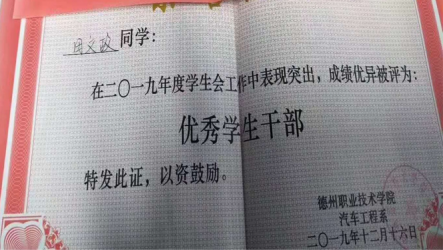 周文政 同学：
在二〇一九年度学生会工作中表现突出，成绩优异被评为：
优秀学生干部
特发此证，以资鼓励。
德州职业技术学院
汽车工程系
二〇一九年十二月十六日